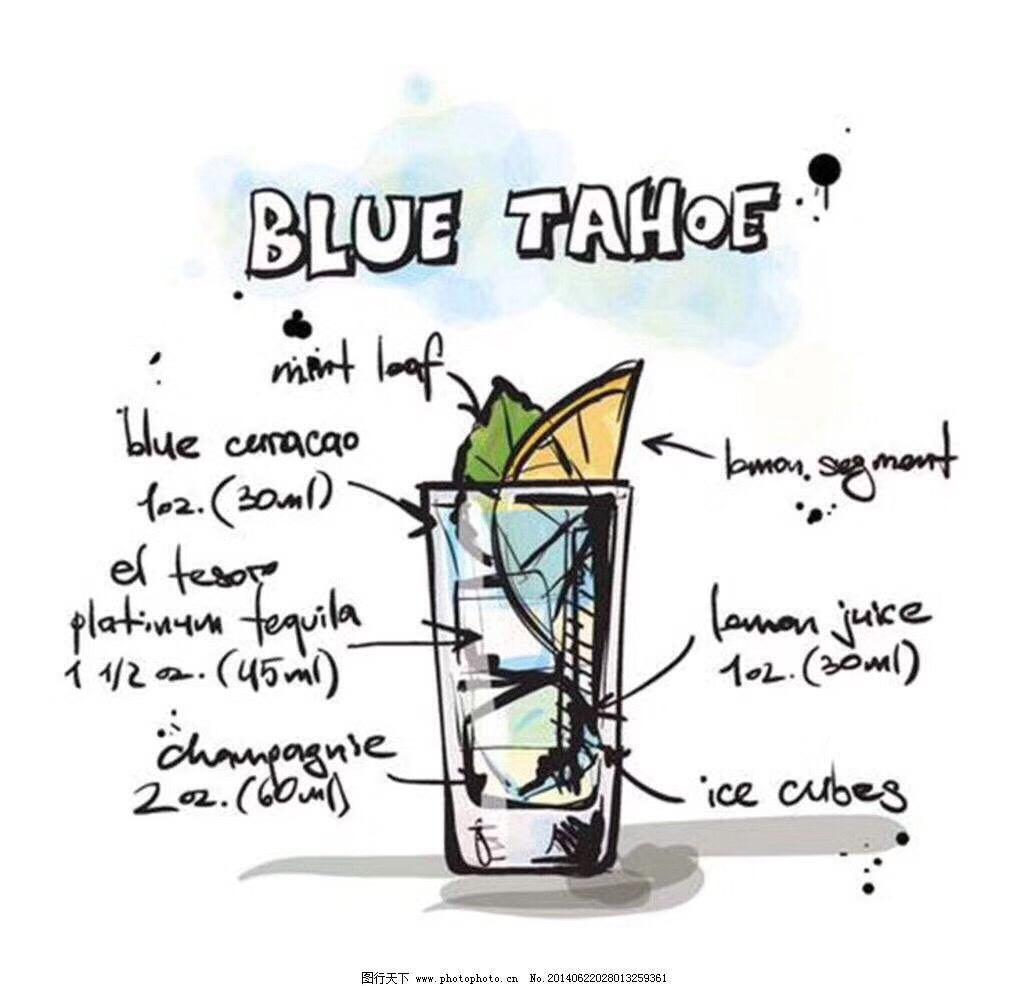 BLUE TAHOE
mint leaf
blue curacao
1oz. (30ml)
el tesoro
platinum tequila
1 1/2 oz. (45ml)
champagnie
2oz. (60ml)
lemon segment
lemon juice
1oz. (30ml)
ice cubes
图行天下 www.photophoto.cn No.20140622028013259361